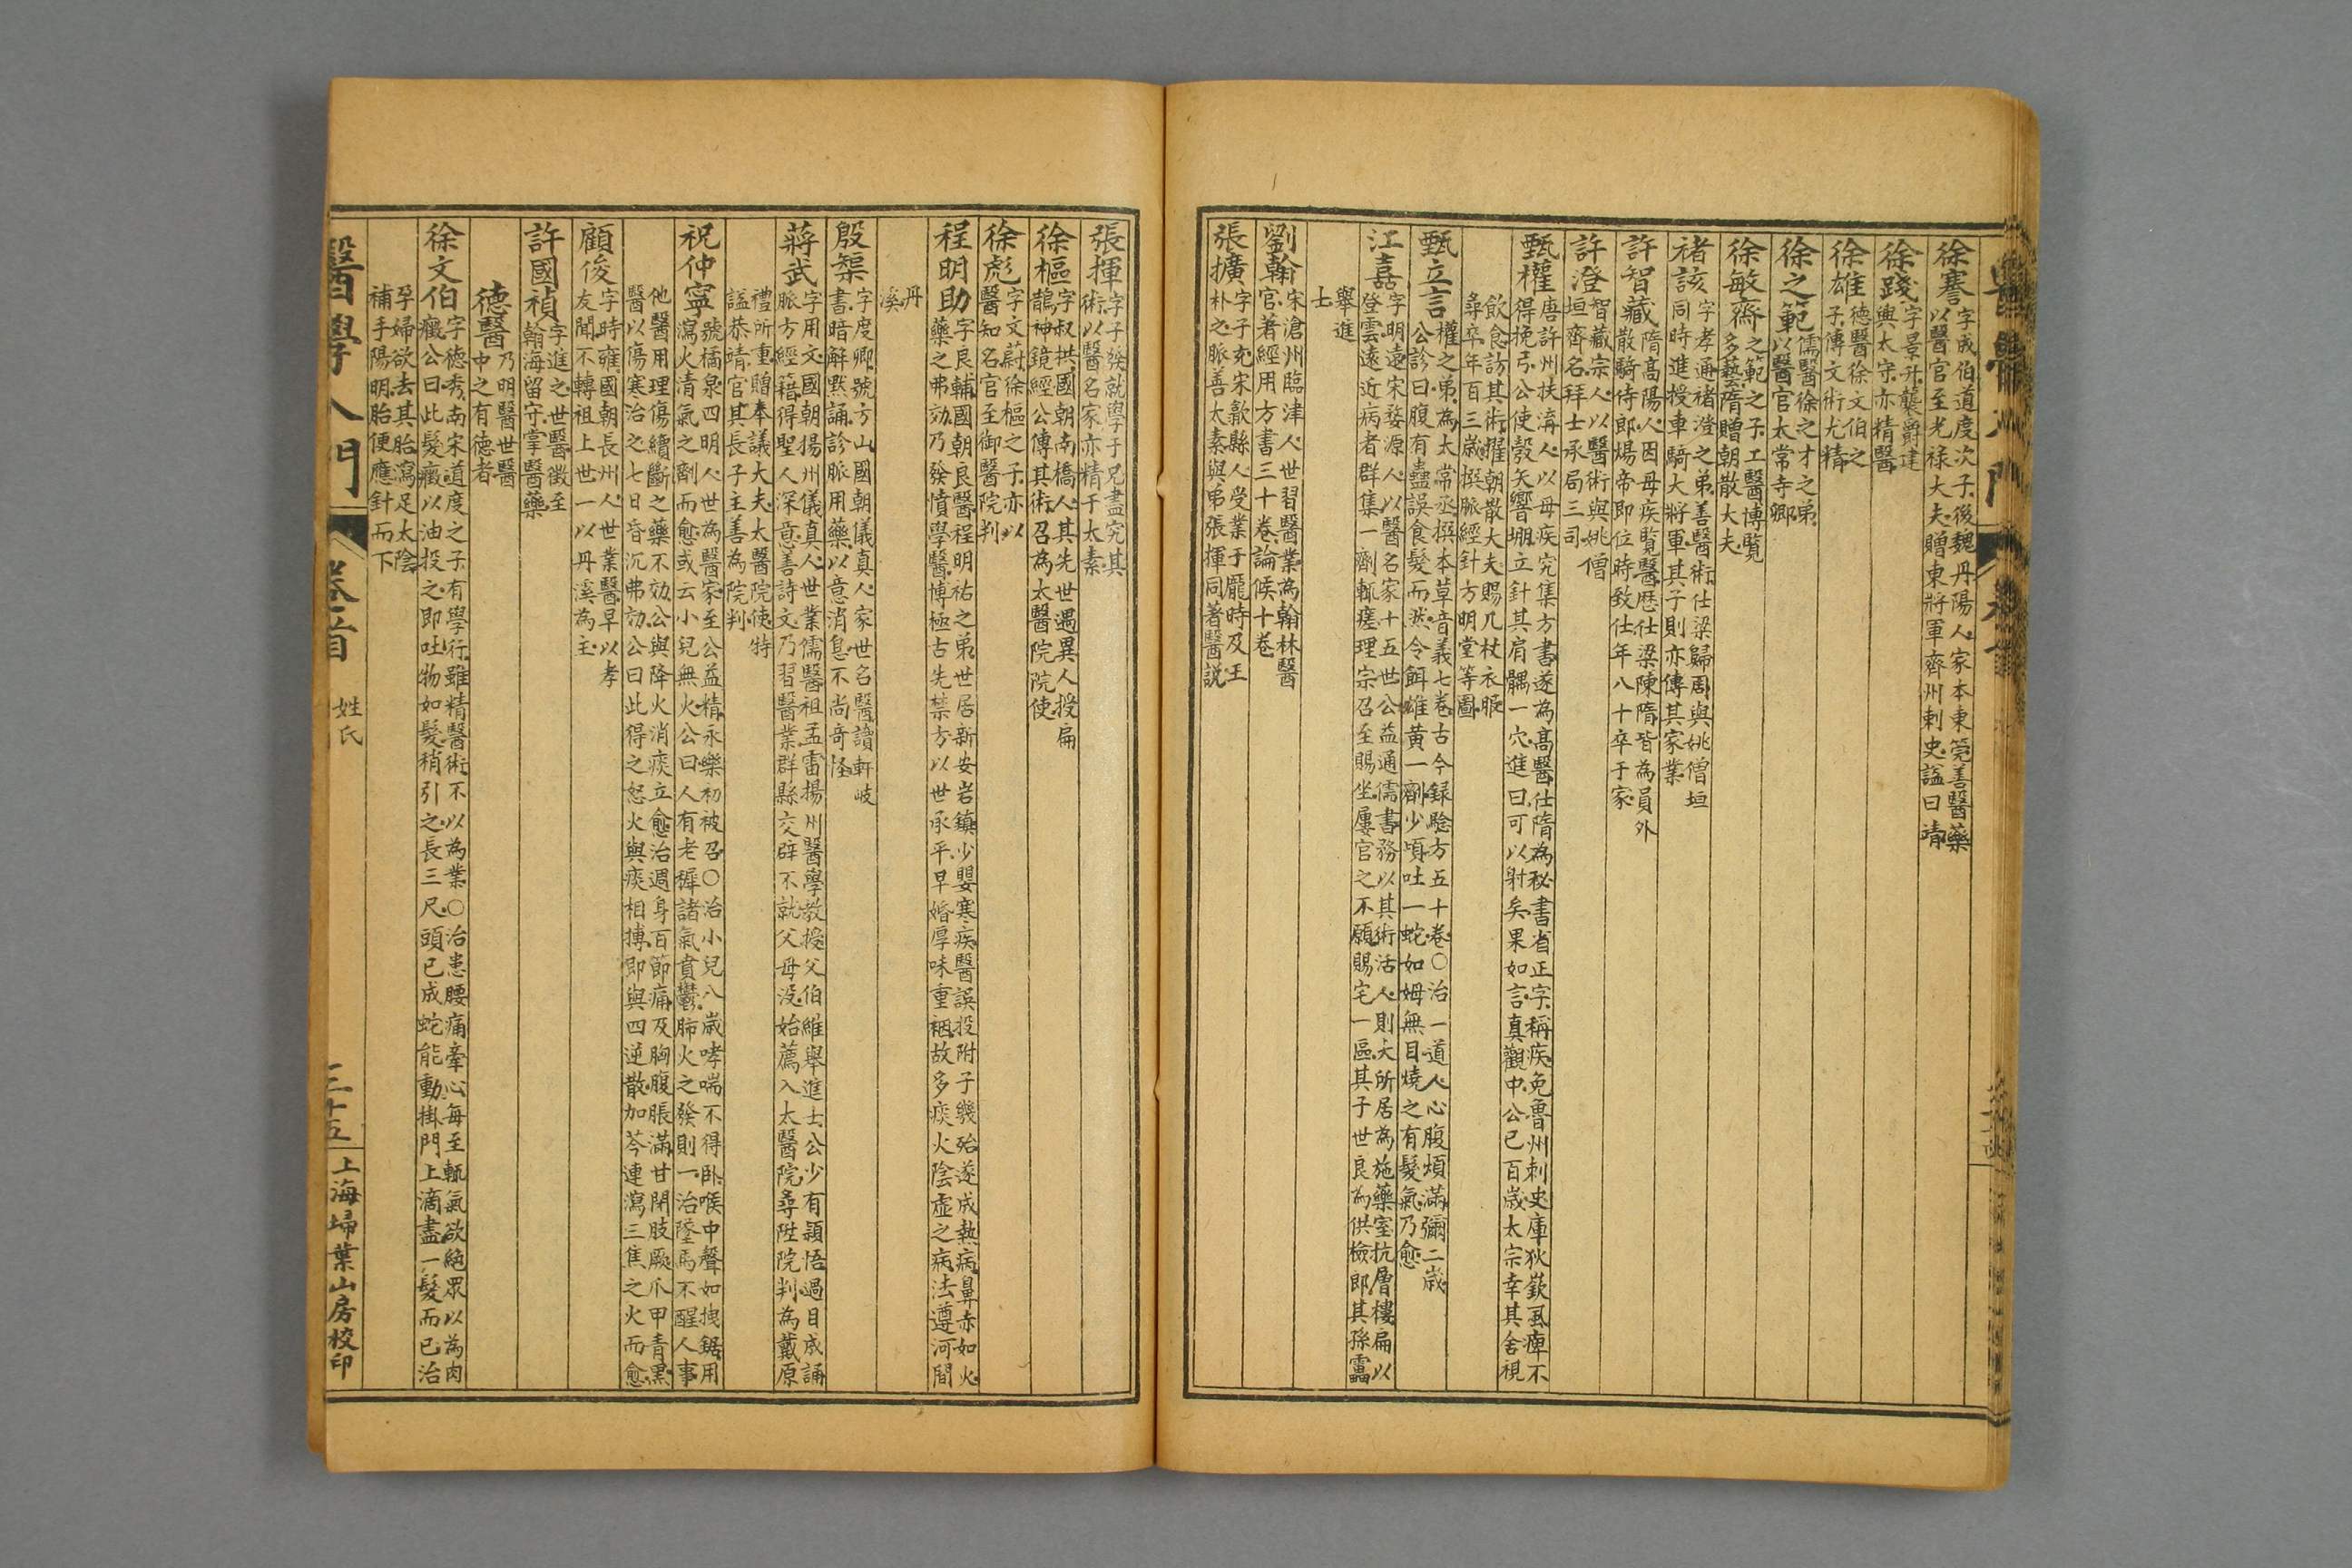 徐謇 字成伯道度次子後魏丹陽人家本東莞善醫藥
以醫官至光祿大夫贈東將軍齊州刺史諡曰靖
徐踐 字景升襲爵建
興太守亦精醫
徐雄 德醫徐文伯之
子傳文術尤精
徐之範 儒醫徐之才之弟
以醫官太常寺卿
徐敏齋 之範之子工醫博覽
多藝隋贈朝散大夫
褚該 字孝通褚澄之弟善醫術仕梁歸周與姚僧垣
同時進授車騎大將軍其子則亦傳其家業
許智藏 隋高陽人因母疾覽醫歷仕梁陳隋皆為員外
散騎侍郎煬帝即位時致仕年八十卒于家
許澄 智藏宗人以醫術與姚僧
垣齊名拜士承局三司
甄權 唐許州扶溝人以母疾究集方書遂為高醫仕隋為秘書省正字稱疾免魯州刺史庫狄嶔風痺不
得挽弓公使彀矢嚮堋立針其肩髃一穴進曰可以射矣果如言真觀中公已百歲太宗幸其舍視
飲食訪其術擢朝散大夫賜几杖衣服
尋卒年百三歲撰脈經針方明堂等圖
甄立言 權之弟為太常丞撰本草音義七卷古今錄驗方五十卷○治一道人心腹煩滿彌二歲
公診曰腹有蠱誤食髮而然令餌雄黃一劑少頃吐一蛇如姆無目燒之有髮氣乃愈
江嘉 字明遠宋婺源人以醫名家十五世公益通儒書務以其術活人則大所居為施藥室抗層樓扁以
登雲遠近病者群集一劑輒瘥理宗召至賜坐屢官之不願賜宅一區其子世良為供檢郎其孫靁
舉進
士
劉翰 宋滄州臨津人世習醫業為翰林醫
官著經用方書三十卷論候十卷
張擴 字子充宋歙縣人受業于龐時及王
朴之脈善太素與弟張揮同著醫説
張揮 字子發就學于兄盡究其
術以醫名家亦精于太素
徐樞 字叔拱國朝南橋人其先世遇異人授扁
鵲神鏡經公傳其術召為太醫院院使
徐彪 字文蔚徐樞之子亦以
醫知名官至御醫院判
程明助 字良輔國朝良醫程明祐之弟世居新安岩鎮少嬰寒疾醫誤投附子幾殆遂成熱病鼻赤如火
藥之弗効乃發憤學醫博極古先禁方以世承平早婚厚味重裀故多痰火陰虛之病法遵河間
丹
溪
殷榘 字度卿號方山國朝儀真人家世名醫讀軒岐
書暗解默誦診脈用藥以意消息不尚奇怪
蔣武 字用文國朝揚州儀真人世業儒醫祖孟雷揚州醫學教授父伯維舉進士公少有穎悟過目成誦
脈方經籍得聖人深意善詩文乃習醫業群縣交辟不就父母沒始薦入太醫院尋陞院判為戴原
禮所重贈奉議大夫太醫院使特
諡恭靖官其長子主善為院判
祝仲寧 號橘泉四明人世為醫家至公益精永樂初被召○治小兒八歲哮喘不得臥喉中聲如拽鋸用
瀉火清氣之劑而愈或云小兒無火公曰人有老穉諸氣賁鬱肺火之發則一治墜馬不醒人事
他醫用理傷續斷之藥不効公與降火消痰立愈治遇身百節痛及胸腹脹滿甘閉肢厥爪甲青黑
醫以傷寒治之七日昏沉弗効公曰此得之怒火與痰相搏即與四逆散加芩連瀉三焦之火而愈
顧俊 字時雍國朝長州人世業醫早以孝
友聞不轉祖上世一以丹溪為主
許國禎 字進之世醫徵至
翰海留守掌醫藥
德醫 乃明醫世醫
中之有德者
徐文伯 字德秀南宋道度之子有學行雖精醫術不以為業○治患腰痛牽心每至輒氣欲絕眾以為肉
癥公曰此髮癥以油投之即吐物如髮稍引之長三尺頭已成蛇能動掛門上滴盡一髮而已治
孕婦欲去其胎瀉足太陰
補手陽明胎便應針而下
醫學入門 卷首 姓氏 三十五 上海埽葉山房校印